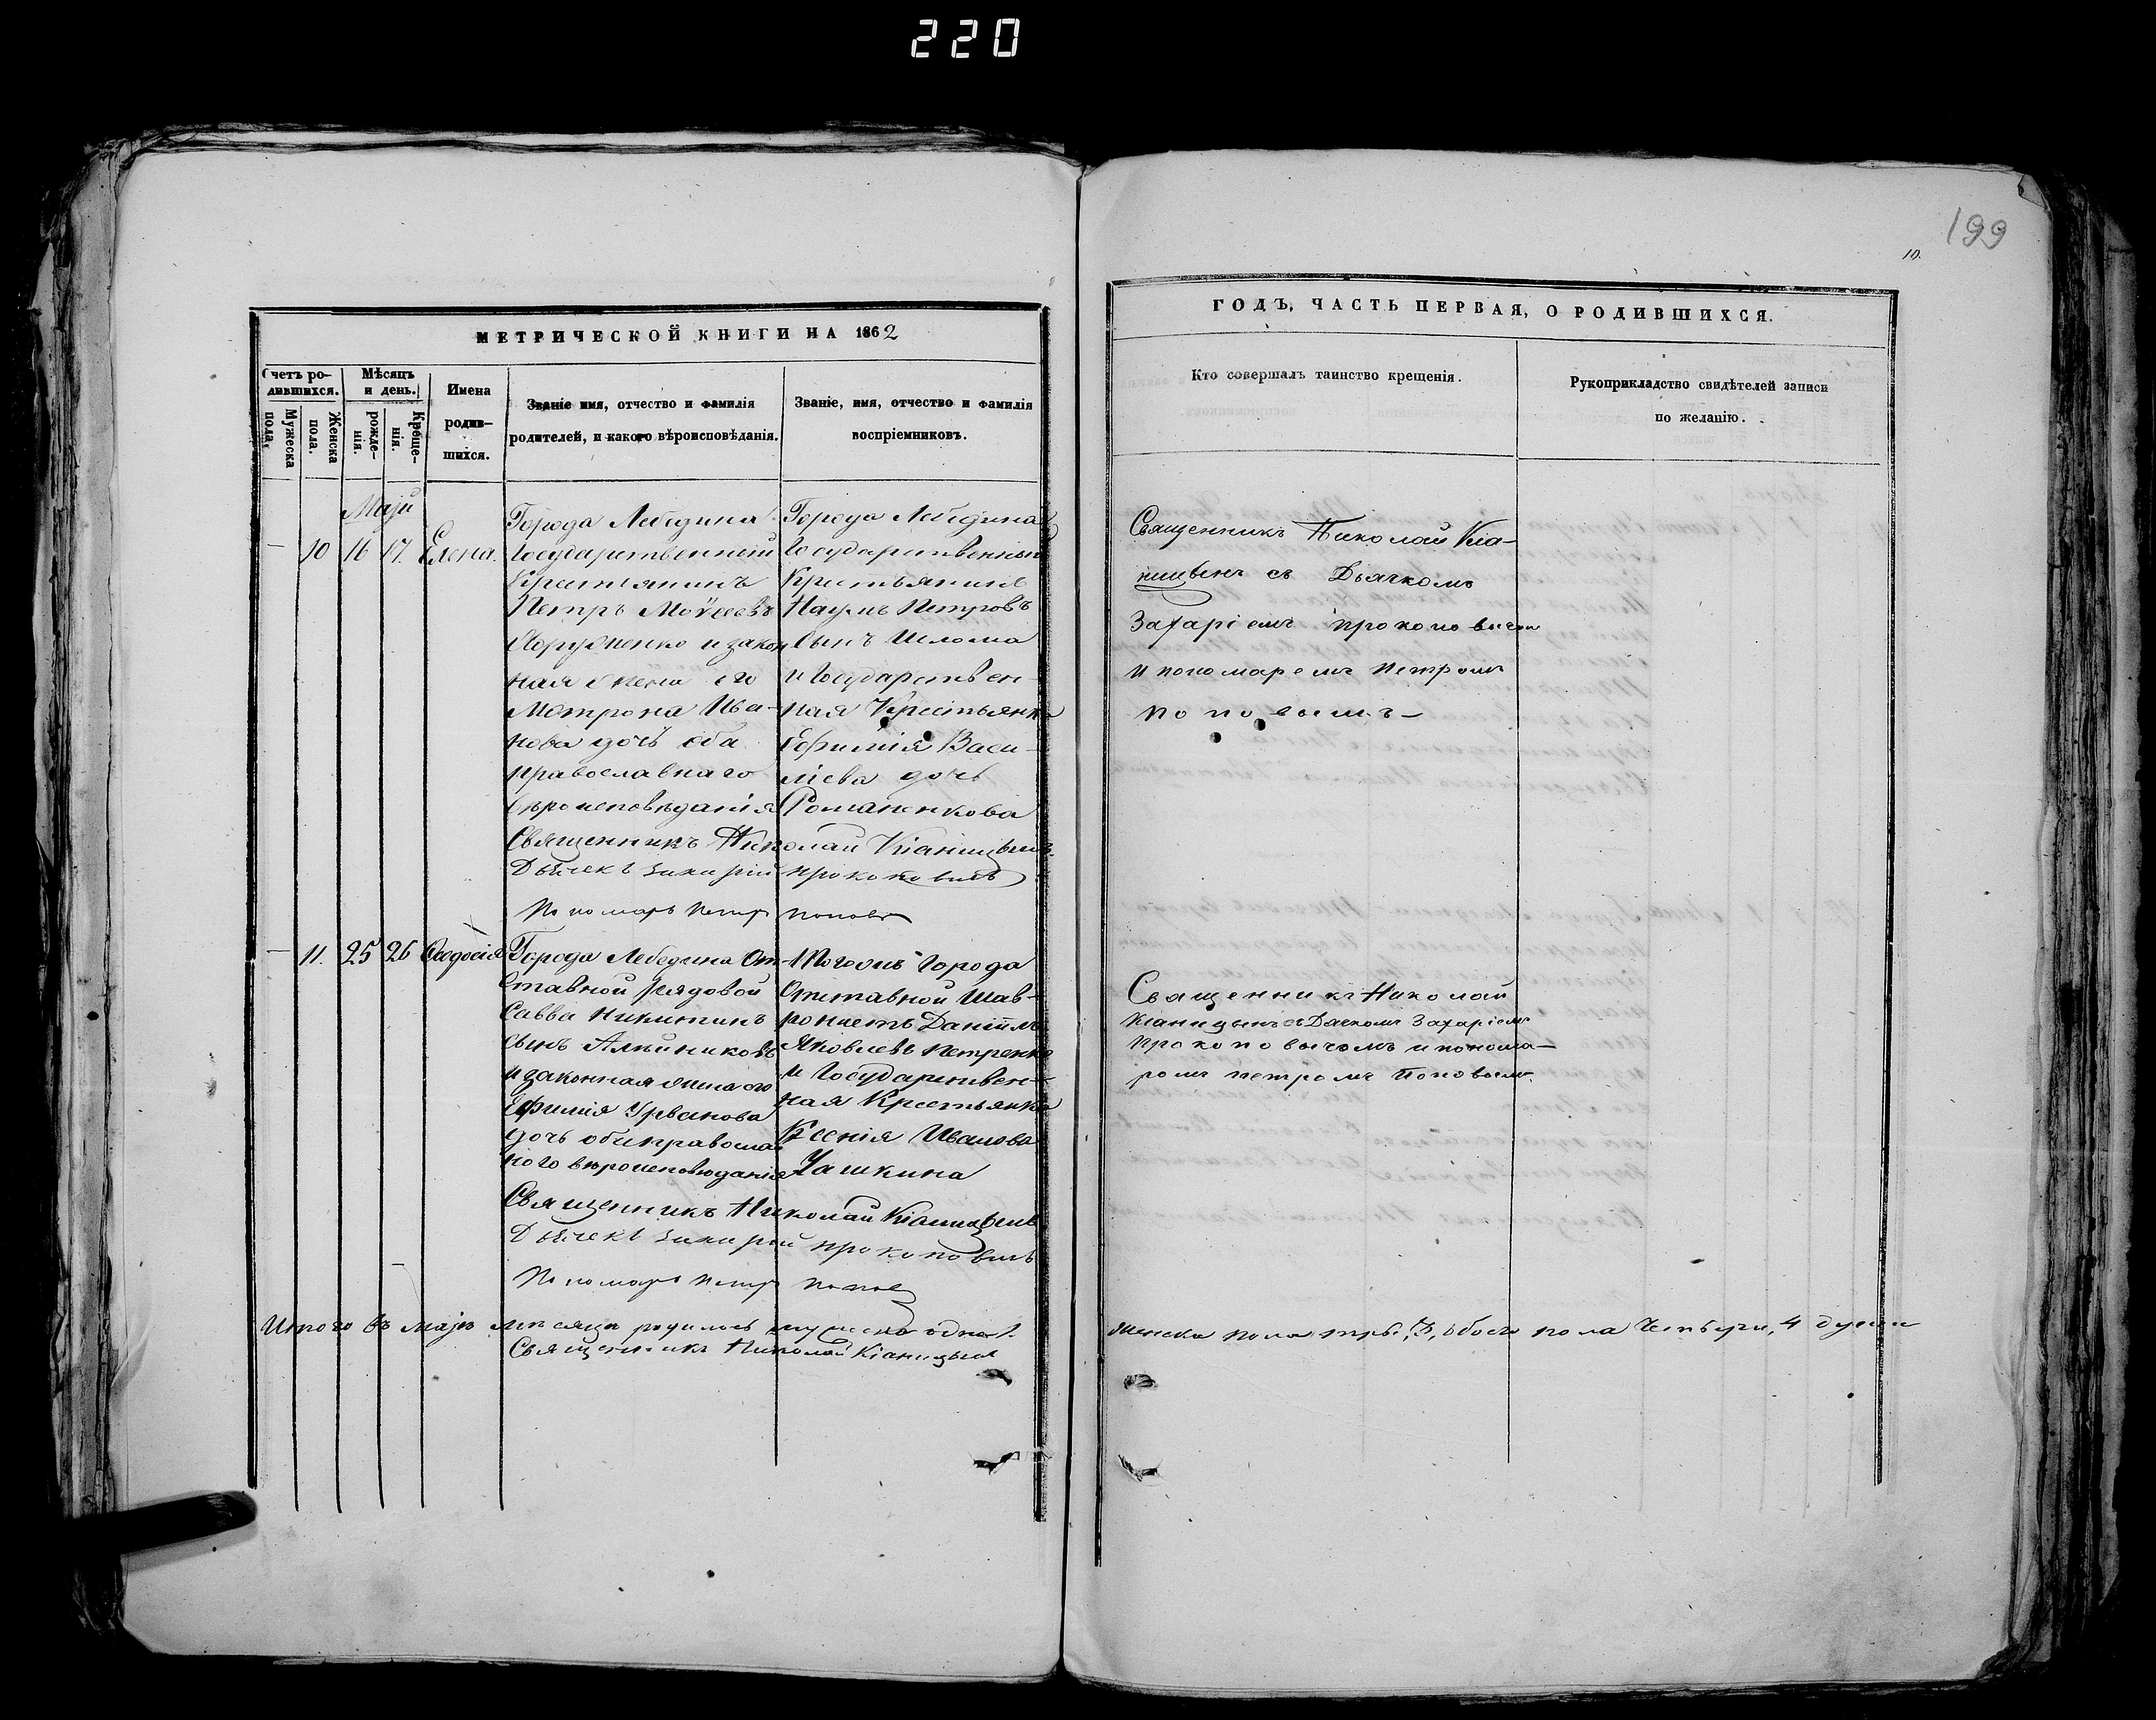 220
199
10.
МЕТРИЧЕСКОЙ КНИГИ НА 1862
Счетъ родившихся.
Мужеска пола.
Женска пола.
Мѣсяцъ и день.
рожденія.
Крещенія.
Имена родившихся.
Званіе имя, отчество и фамилія
родителей, и какого вѣроисповѣданія.
Званіе, имя, отчество и фамилія
воспріемниковъ.
Маія
10 16 17. Елена.
Города Лебедина
Государственный
Крестьянинъ
Петръ Моѵсеевъ
и закон
ная жена его
Матрона Ива-
нова дочь оба
православнаго
вѣроисповѣданія
Города Лебедина
Государственный
Крестьянинъ
Наумъ Петровъ
сынъ Шлома
и Государствен-
ная Крестьянка
Ефимія Васи-
ліева дочь
Романенкова
Священникъ Николай Кіаницынъ.
Дьячекъ Захарій Прокоповичъ
Пономарь Петръ Поповъ
11. 25 26 Ѳеодосія
Города Лебедина От-
ставной рядовой
Савва Никитинъ
сынъ
и законная жена его
Ефимія Урванова
дочь оба православ
наго вѣроисповѣданія
Тогожъ Города
Отставной
Даніилъ
Яковлевъ Петренко
и Государствен-
ная Крестьянка
Ксенія Иванова
Чашкина
Священникъ Николай Кіаницынъ
Дьячекъ Захарій Прокоповичъ
Пономарь Петръ Поповъ
Итого въ Маіѣ мѣсяцѣ родилось мужеска одна 1.
Священникъ Николай Кіаницынъ
ГОДЪ, ЧАСТЬ ПЕРВАЯ, О РОДИВШИХСЯ.
Кто совершалъ таинство крещенія.
Рукоприкладство свидѣтелей записи
по желанію.
Священникъ Николай Кіа-
ницынъ съ Дьячкомъ
Захаріемъ Прокоповичом
и пономаремъ Петромъ
Поповымъ
Священникъ Николай
Кіаницынъ съ Дьячкомъ Захаріемъ
Прокоповичомъ и понома-
ромъ Петромъ Поповымъ.
женска пола три, 3, обоего пола Четыри, 4 души